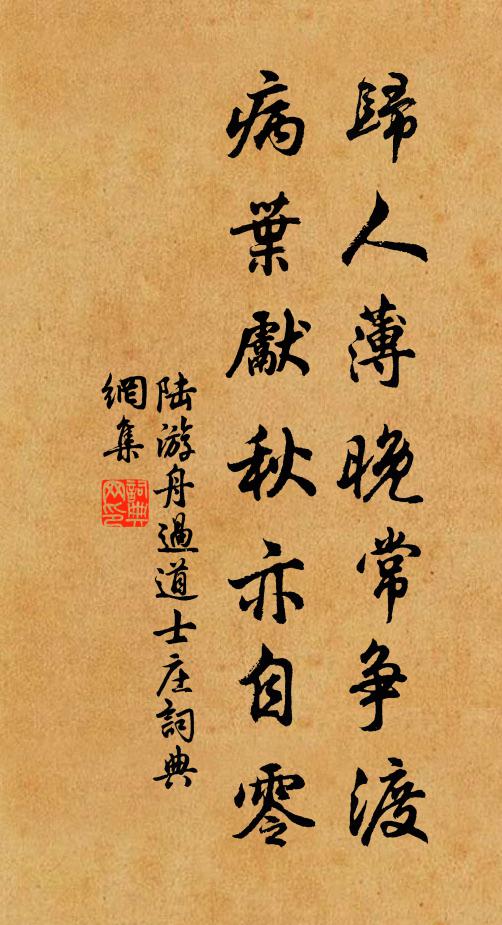 歸人薄晚常争渡
病葉獻秋亦自零
陆游舟過道士庄詞典
網集
詞典
网印